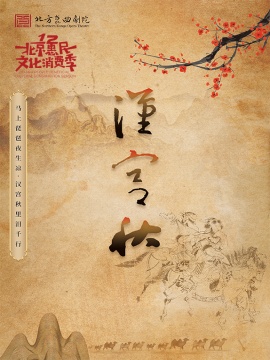 北方昆曲剧院
The Northern Kunqu Opera Theatre
12
北京惠民
文化消费季
马上琵琶夜生凉·汉宫秋里泪千行
漢宫秋